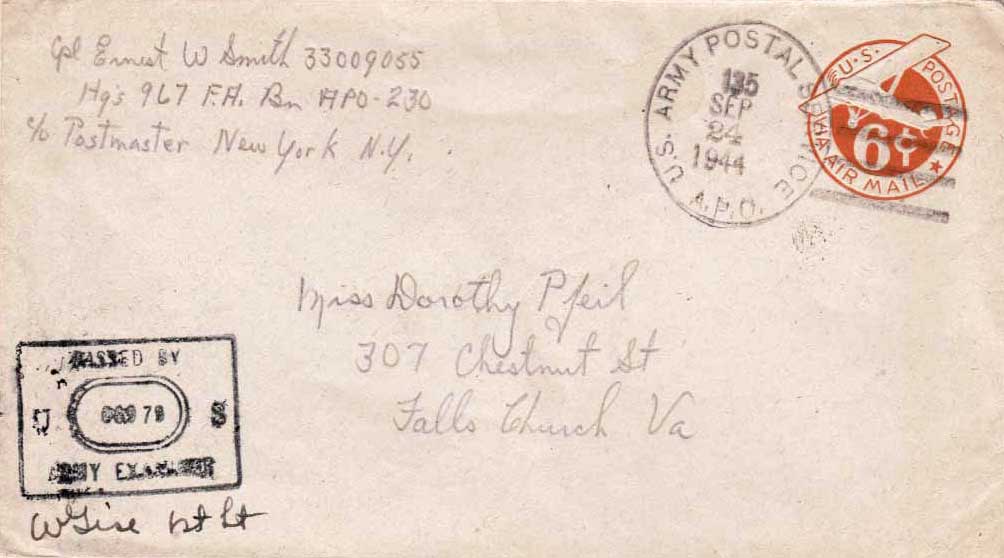 Cpl Ernest W Smith 33009055
Hq's 967 F.A. Bn APO-230
c/o Postmaster New York N.Y.
U.S. ARMY POSTAL SERVICE
135
SEP
24
1944
A.P.O.
U.S. POSTAGE
6¢
VIA AIR MAIL
Miss Dorothy Pfeil
307 Chestnut St
Falls Church Va
PASSED BY
U S
ARMY EXAMINER
1st Lt